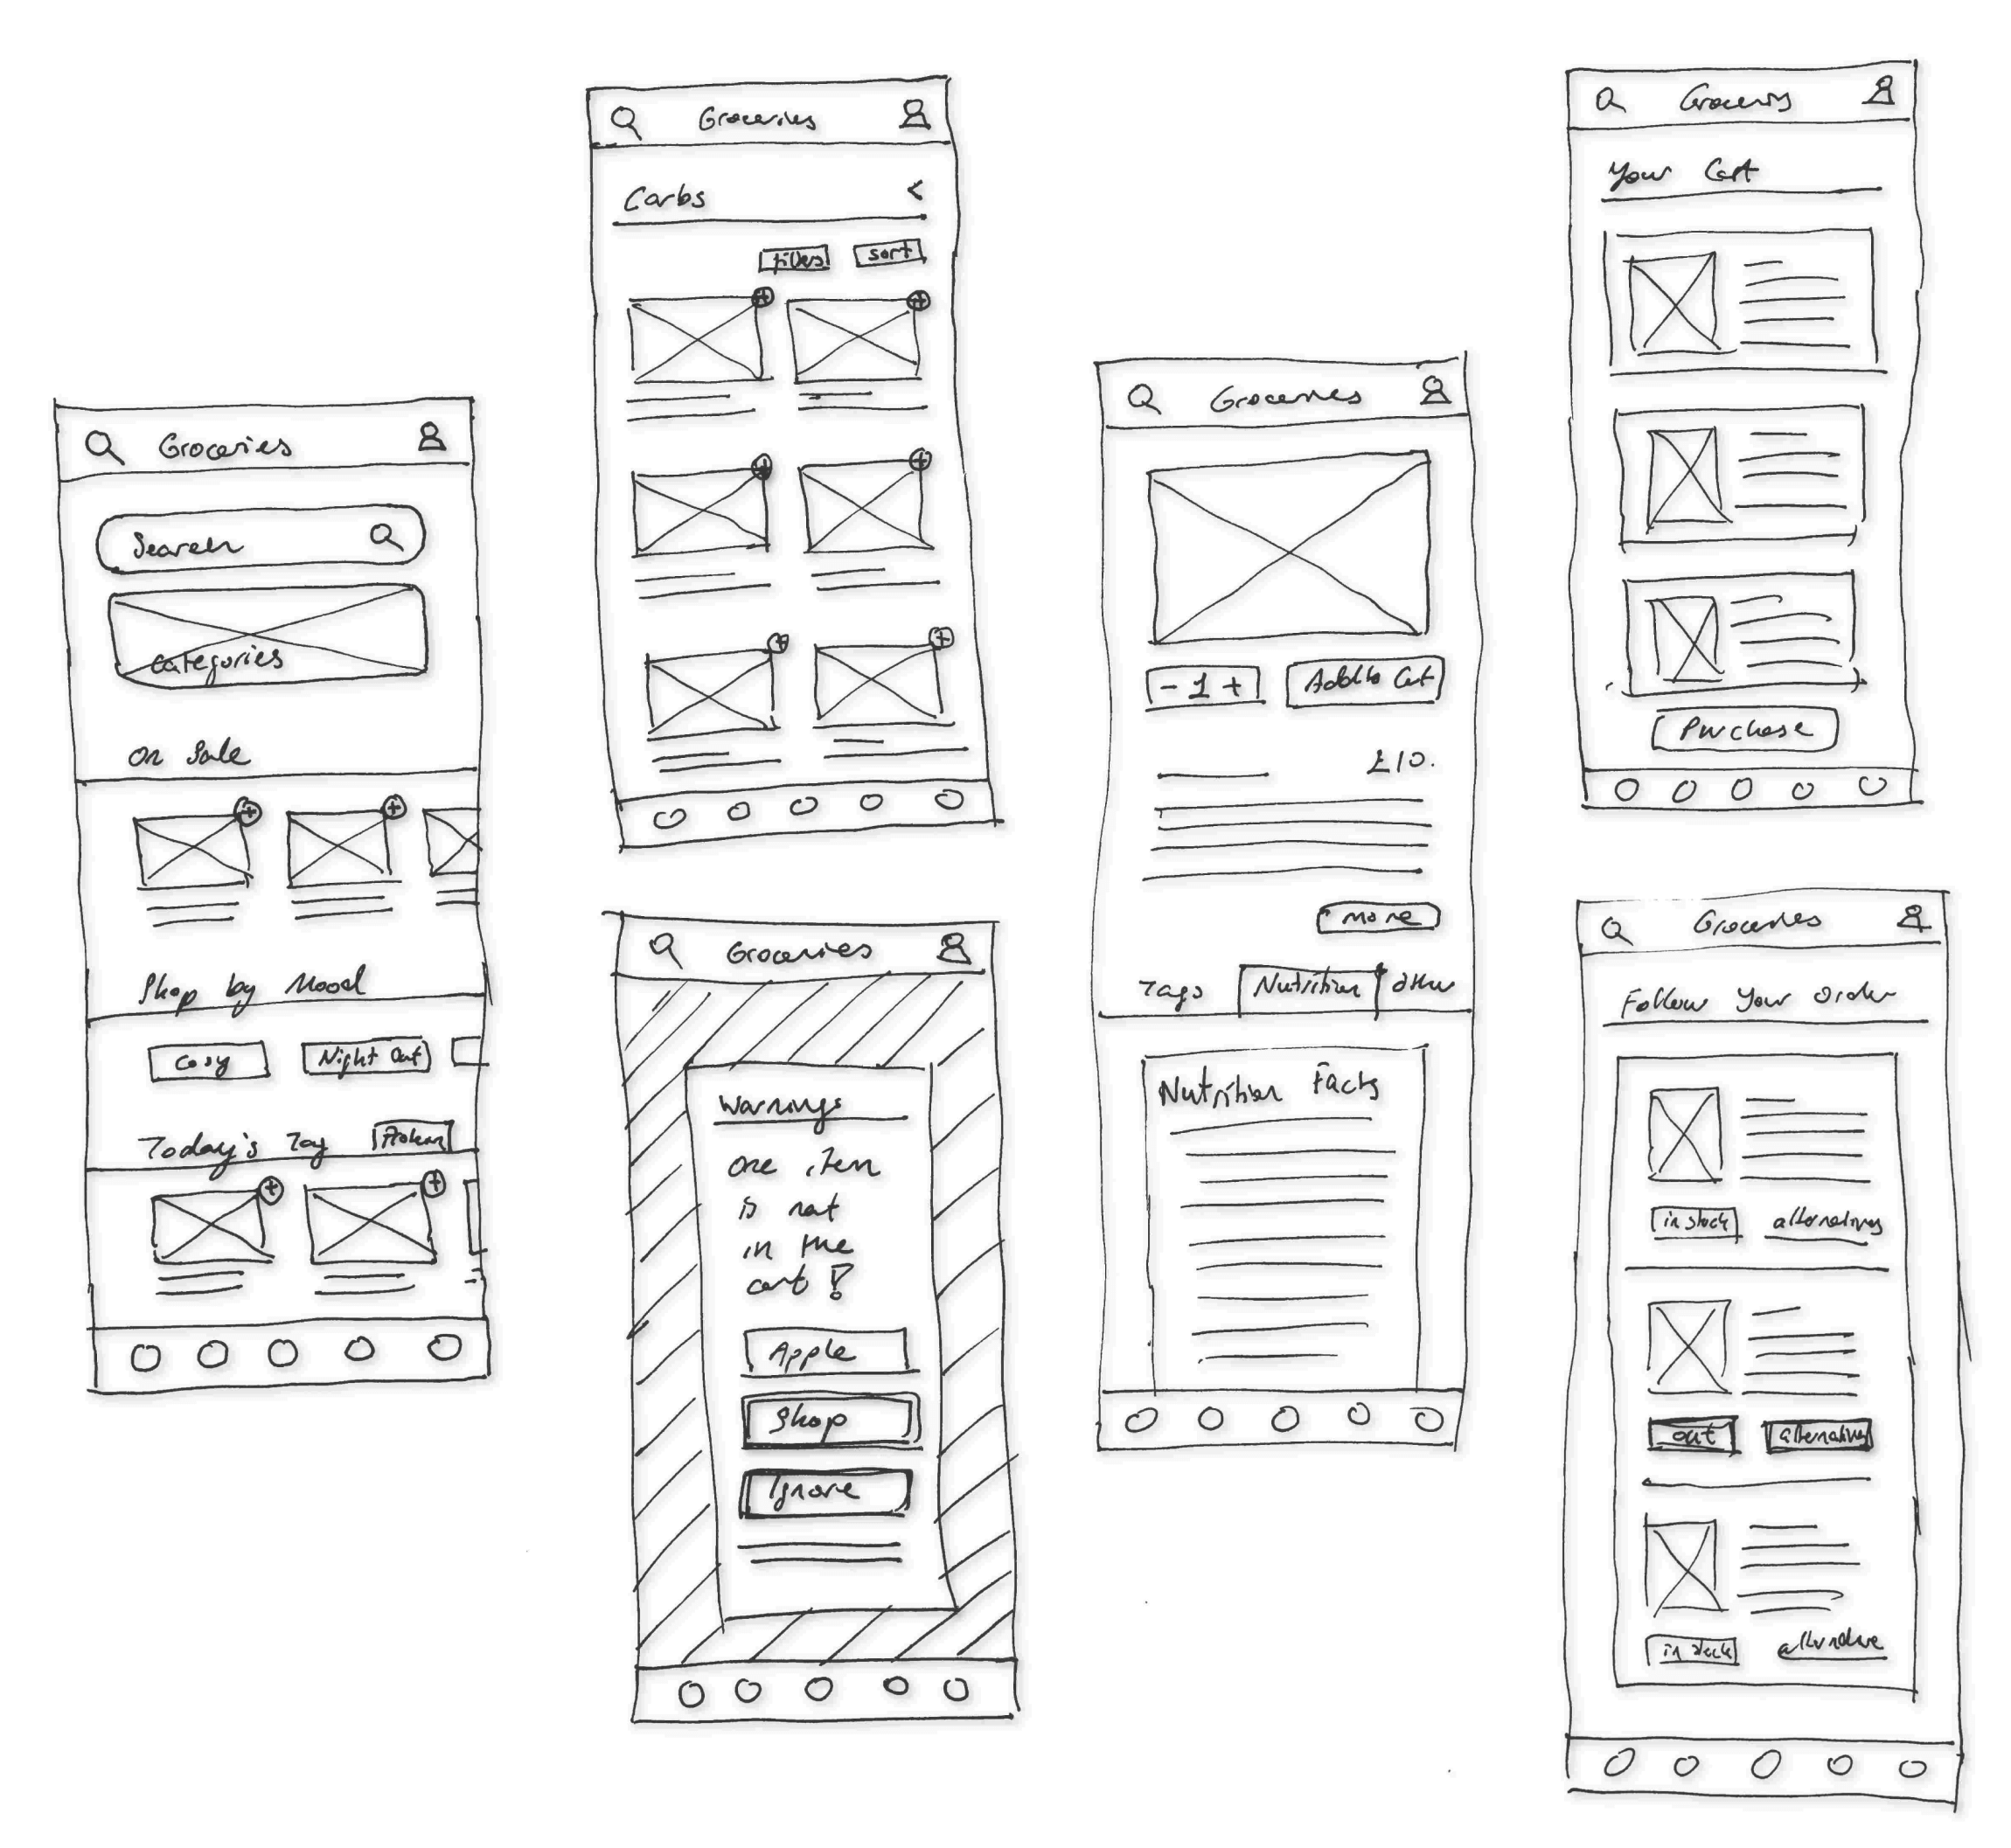 Groceries
Search
Categories
On Sale
Shop by Mood
Cosy
Night Out
Today's Tag
Groceries
Carbs <
filters sort
Groceries
Warnings
One item
is not
in the
cart!
Apple
Shop
Ignore
Groceries
- 1 +
Add to Cart
£10.
more
Tags Nutrition other
Nutrition Facts
Groceries
Your Cart
Purchase
Groceries
Follow Your Order
in stock alternatives
out alternatives
in stock alternative